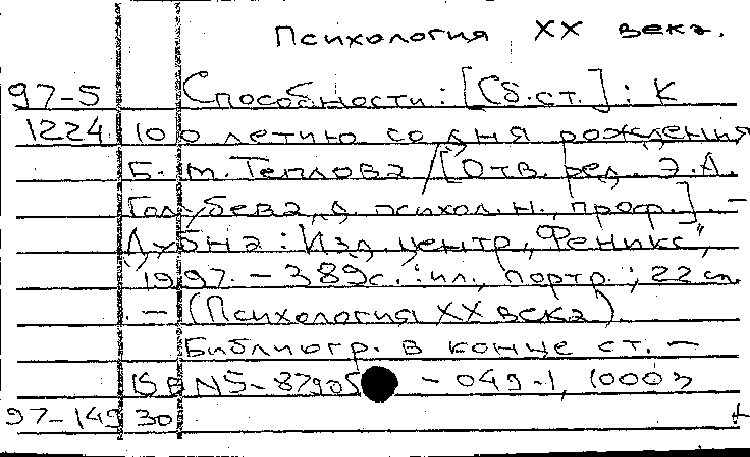 Психология XX века.
97-5 Способности: [Сб.ст.]: К
1224 100 летию со дня рождения
Б. М. Теплова / [Отв. ред. Э.А.
Голубева, д. психол. н., проф.]. -
Дубна: Изд. центр „Феникс",
1997. - 389с. : ил., портр. ; 22 см.
- (Психология XX века).
Библиогр. в конце ст. -
ISBN 5-87905 - 049-1, 1000э
97-14930 +